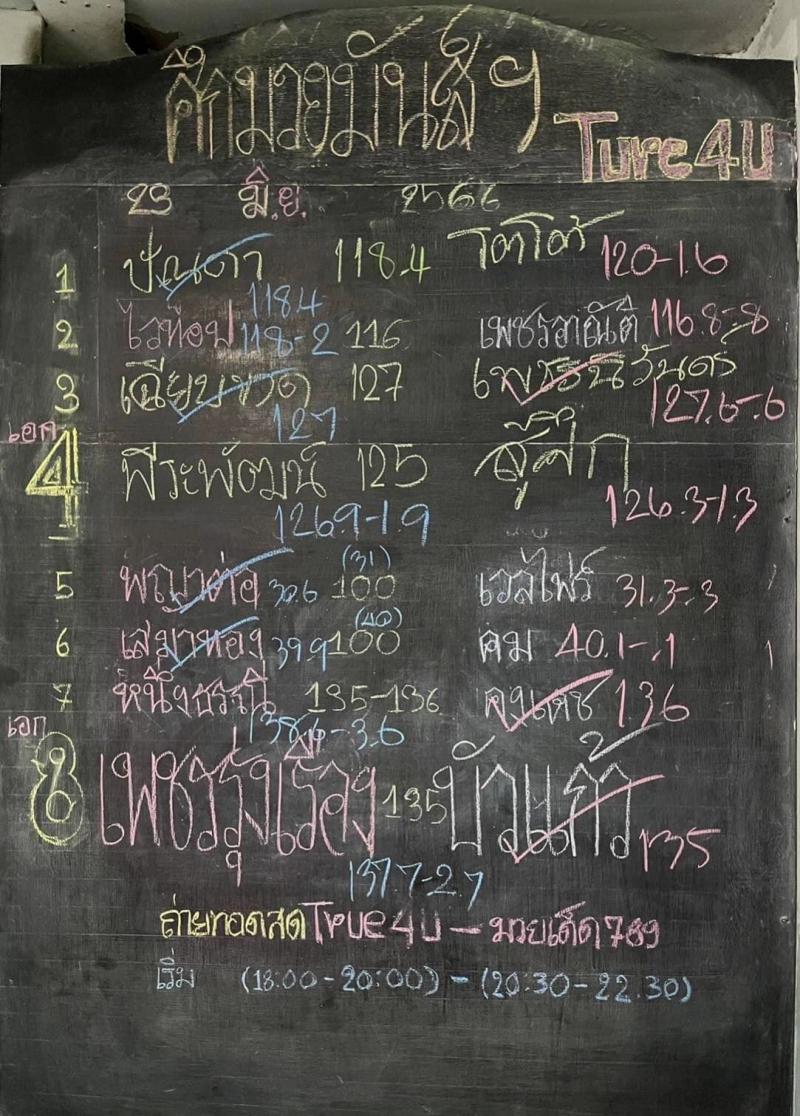 ศึกมวยมันส์ฯ
Ture4U
23 มิ.ย. 2566
1 ปัณดา 118.4 โตโต้ 120-1.6
118.4
2 ไวท๊อป 118-2 116 เพชรอาณัติ 116.8-.8
3 เฉียบขาด 127 เพชรนิรันดร์
127 127.6-.6
เอก
4 พีระพัฒน์ 125 สู้ศึก
126.9-1.9 126.3-1.3
(31)
5 พญาต่อ 30.6 100 เวลไฟร์ 31.3-.3
(40)
6 เสมาทอง 39.9 100 คม 40.1-.1
7 หนึ่งธรณี 135-136 คงเดช 136
138.6-3.6
เอก
8 เพชรรุ่งเรือง 135 บัวแก้ว 135
137.7-2.7
ถ่ายทอดสด True4U - มวยเด็ด789
เริ่ม (18:00-20:00) - (20:30-22.30)